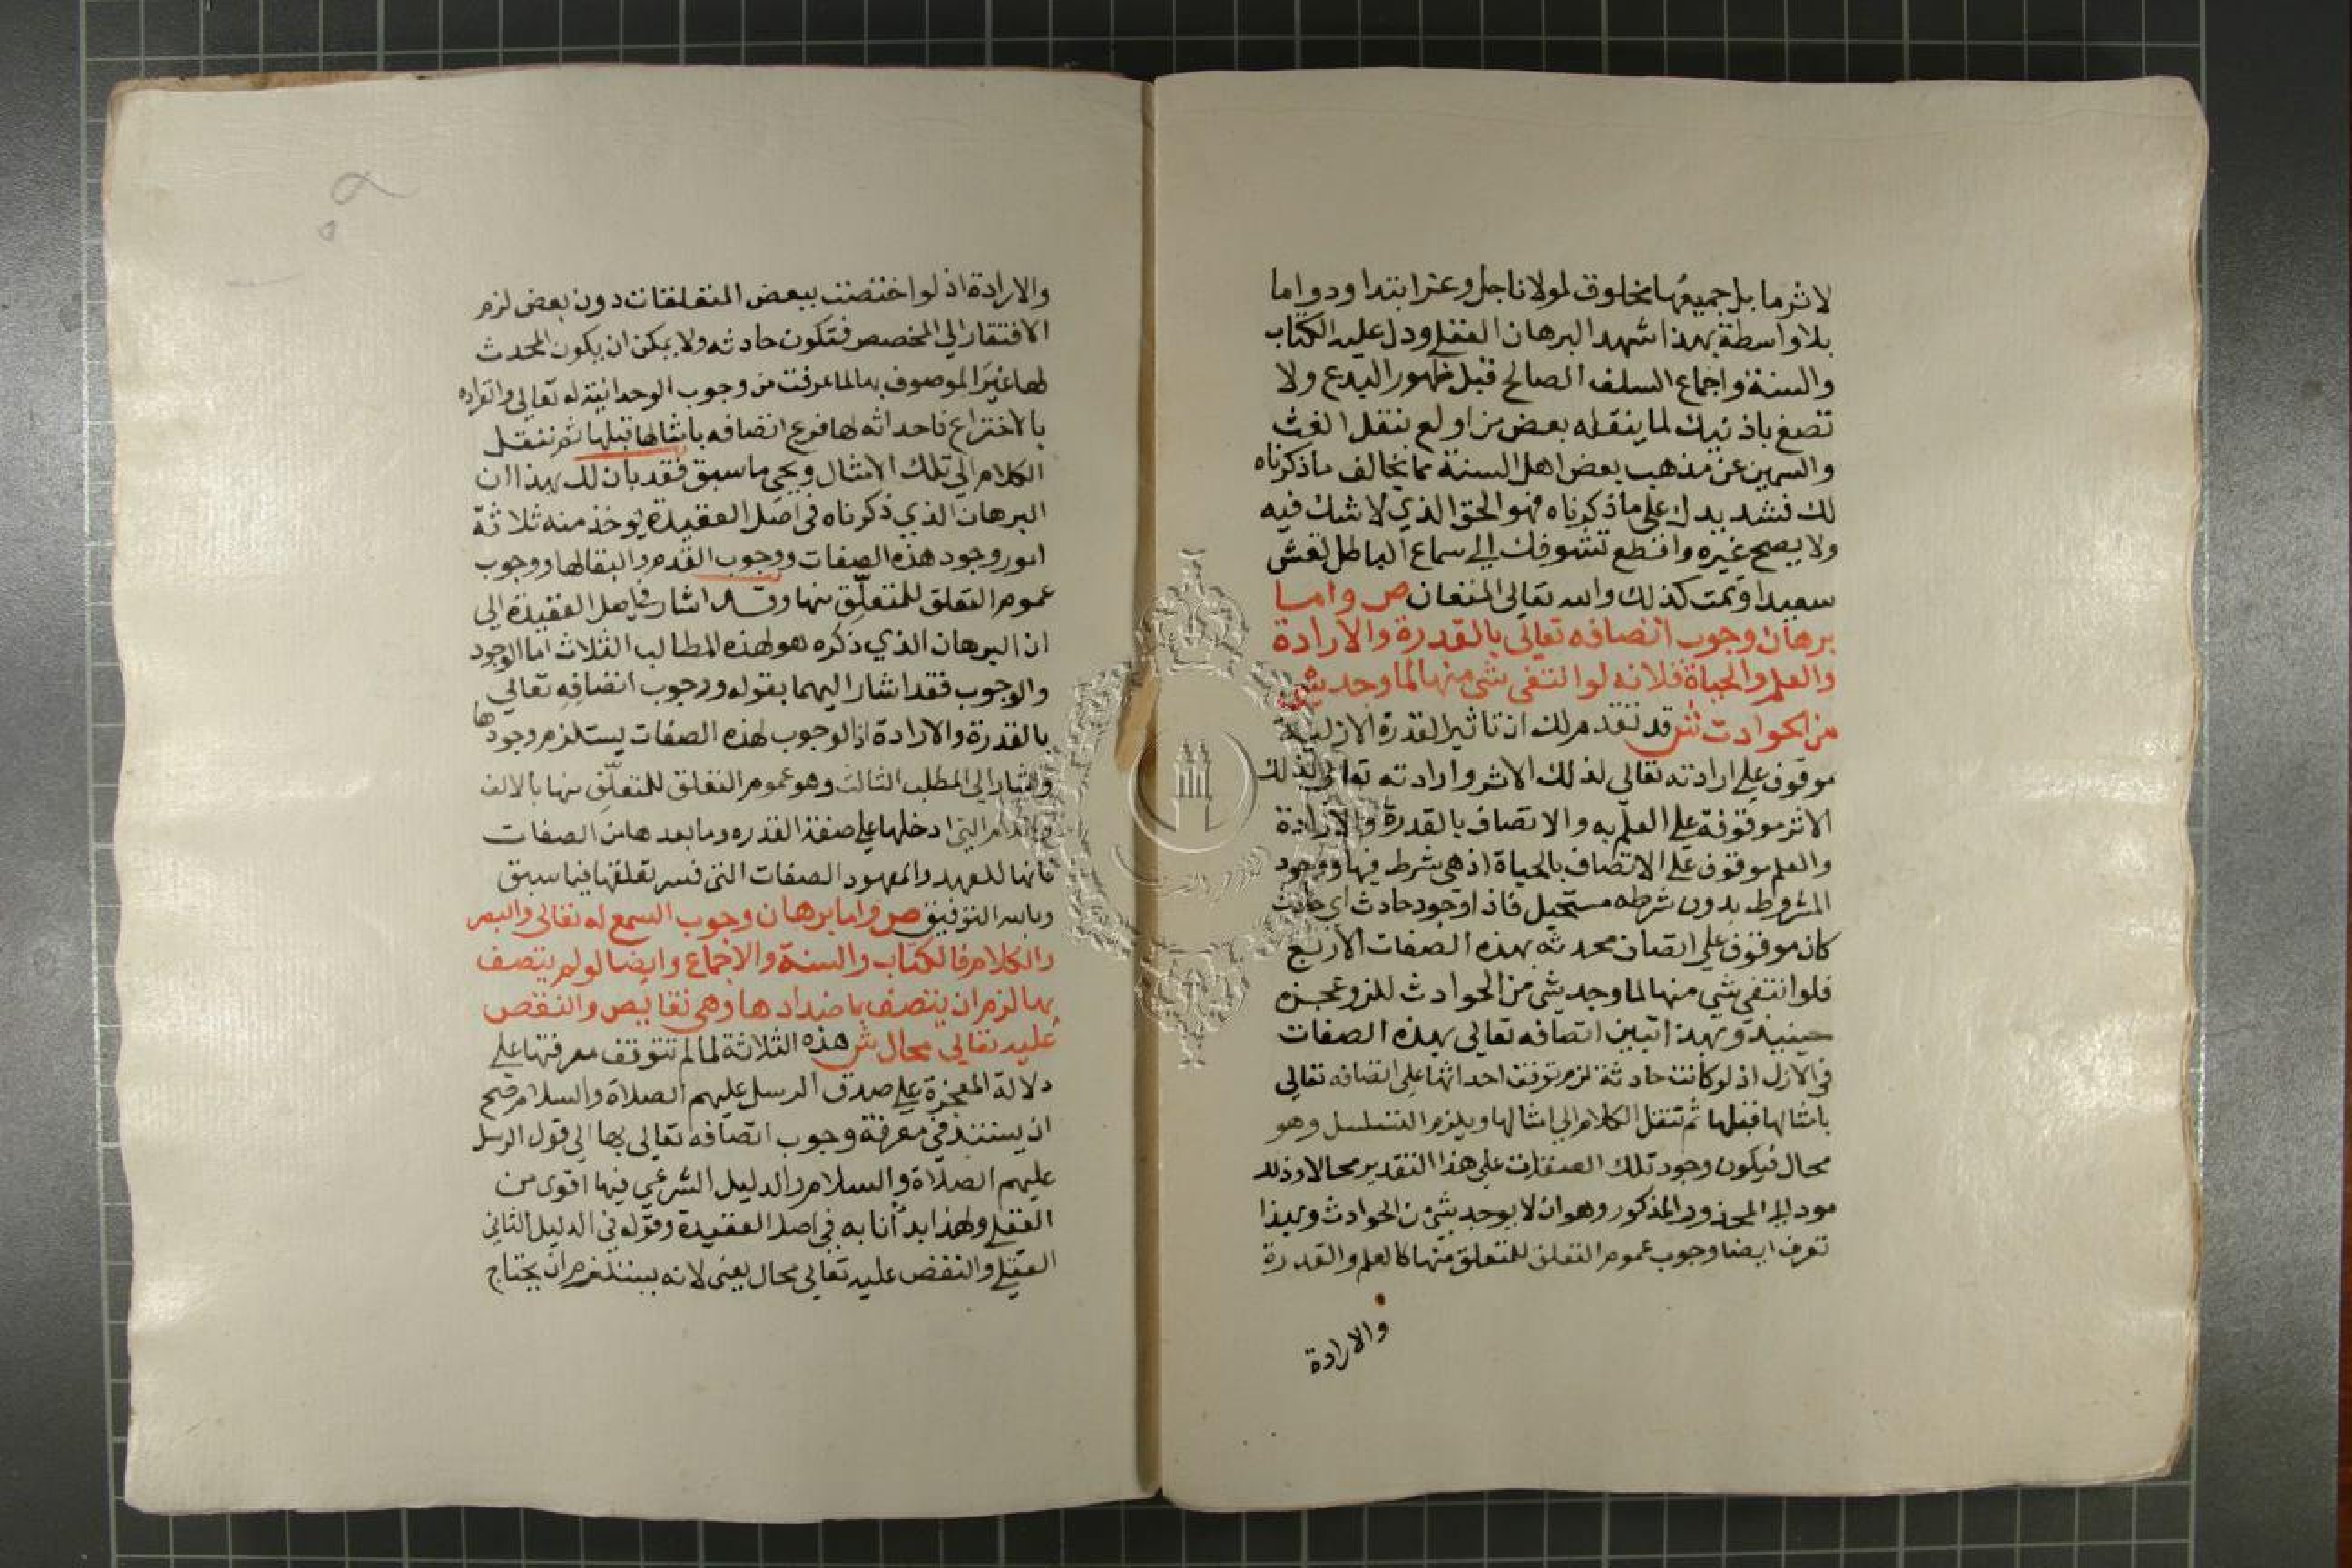 لاثر ما بل جميعها مخلوق لمولانا جل وعز ابتدا ودواما
بلا واسطة بهذا شهد البرهان العقلي ودل عليه الكتاب
والسنة واجماع السلف الصالح قبل ظهور البدع ولا
تصغ باذنيك لما ينقله بعض من اولع بنقل الغث
والسمين عن مذهب بعض اهل السنة مما يخالف ما ذكرناه
لك فشد يدك على ما ذكرناه فهو الحق الذي لا شك فيه
ولا يصح غيره واقطع تشوفك الي سماع الباطل تعش
سعيدا وتمت كذلك والله تعالى المستعان ص واما
برهان وجوب اتصافه تعالى بالقدرة والارادة
والعلم والحياة فلانه لو انتفى شى منها لما وجد شى
من الحوادث ش قد تقدم لك ان تاثير القدرة الازلية
موقوف على ارادته تعالى لذلك الاثر وارادته تعالى لذلك
الاثر موقوفة على العلم به والاتصاف بالقدرة والارادة
والعلم موقوف على الاتصاف بالحياة اذ هى شرط فيها ووجود
المشروط بدون شرطه مستحيل فاذا وجود حادث اي حادث
كان موقوف على اتصاف محدثه بهذه الصفات الاربع
فلو انتفى شي منها لما وجد شي من الحوادث للزوم عجزه
حينيذ وبهذا تبين اتصافه تعالى بهذه الصفات
في الازل اذ لو كانت حادثة لزم توقف احداثها على اتصافه تعالي
بامثالها قبلها ثم تنقل الكلام الي امثالها ويلزم التسلسل وهو
محال فيكون وجود تلك الصفات على هذا التقدير محالا وذلك
مود الى المحذور المذكور وهو ان لا يوجد شى من الحوادث وبهذا
تعرف ايضا وجوب عموم التعلق للمتعلق منها كالعلم والقدرة
والارادة
والارادة اذ لو اختصت ببعض المتعلقات دون بعض لزم
الافتقار الي المخصص فتكون حادثه ولا يمكن ان يكون المحدث
لها غير الموصوف بها لما عرفت من وجوب الوحدانية له تعالى وانفراده
بالاختراع فاحداثه لها فرع اتصافه بامثالها قبلها ثم ننقل
الكلام الي تلك الامثال ويجي ما سبق فقد بان لك بهذا ان
البرهان الذي ذكرناه في اصل العقيدة يوخذ منه ثلاثة
امور وجود هذه الصفات ووجوب القدم والبقا لها ووجوب
عموم التعلق للمتعلق منها وقد اشار في اصل العقيدة الي
ان البرهان الذي ذكره هو لهذه المطالب الثلاث اما الوجود
والوجوب فقد اشار اليهما بقوله ووجوب اتصافه تعالي
بالقدرة والارادة اذ الوجوب لهذه الصفات يستلزم وجودها
واشار الي المطلب الثالث وهو عموم التعلق للمتعلق منها بالالف
واللام التي ادخلها على صفة القدره وما بعدها من الصفات
فانها للعهد والمعهود الصفات التي فسر تعلقها فيما سبق
وبالله التوفيق ص واما برهان وجوب السمع له تعالى والبصر
والكلام فالكتاب والسنة والاجماع وايضا لو لم يتصف
بها لزم ان يتصف باضدادها وهي نقايص والنقص
عليه تعالي محال ش هذه الثلاثة لما لم تتوقف معرفتها على
دلالة المعجزة على صدق الرسل عليهم الصلاة والسلام صح
ان يستند في معرفة وجوب اتصافه تعالى بها الي قول الرسل
عليهم الصلاة والسلام والدليل الشرعي فيها اقوى من
العقلي ولهذا بدأنا به في اصل العقيدة وقوله في الدليل الثاني
العقلي والنقص عليه تعالي محال يعني لانه يستلزم ان يحتاج